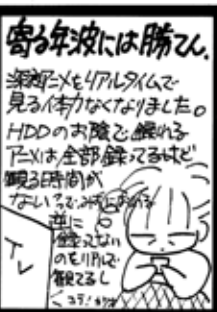 寄る年波には勝てん。
深夜アニメをリアルタイムで
見る体力なくなりました。
HDDのお陰で観れる
アニメは全部録ってるけど
観る時間が
ない
逆に
録ってない
のをリアルで
観てるし
TV
コラ!